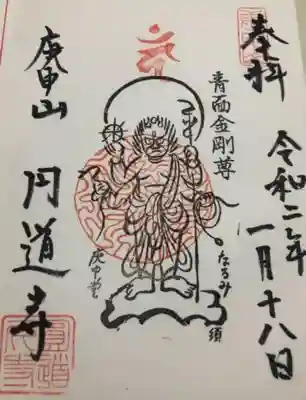 奉拝
令和二年
一月十八日
青面金剛尊
なるみ
庚申堂
庚申山
円道寺